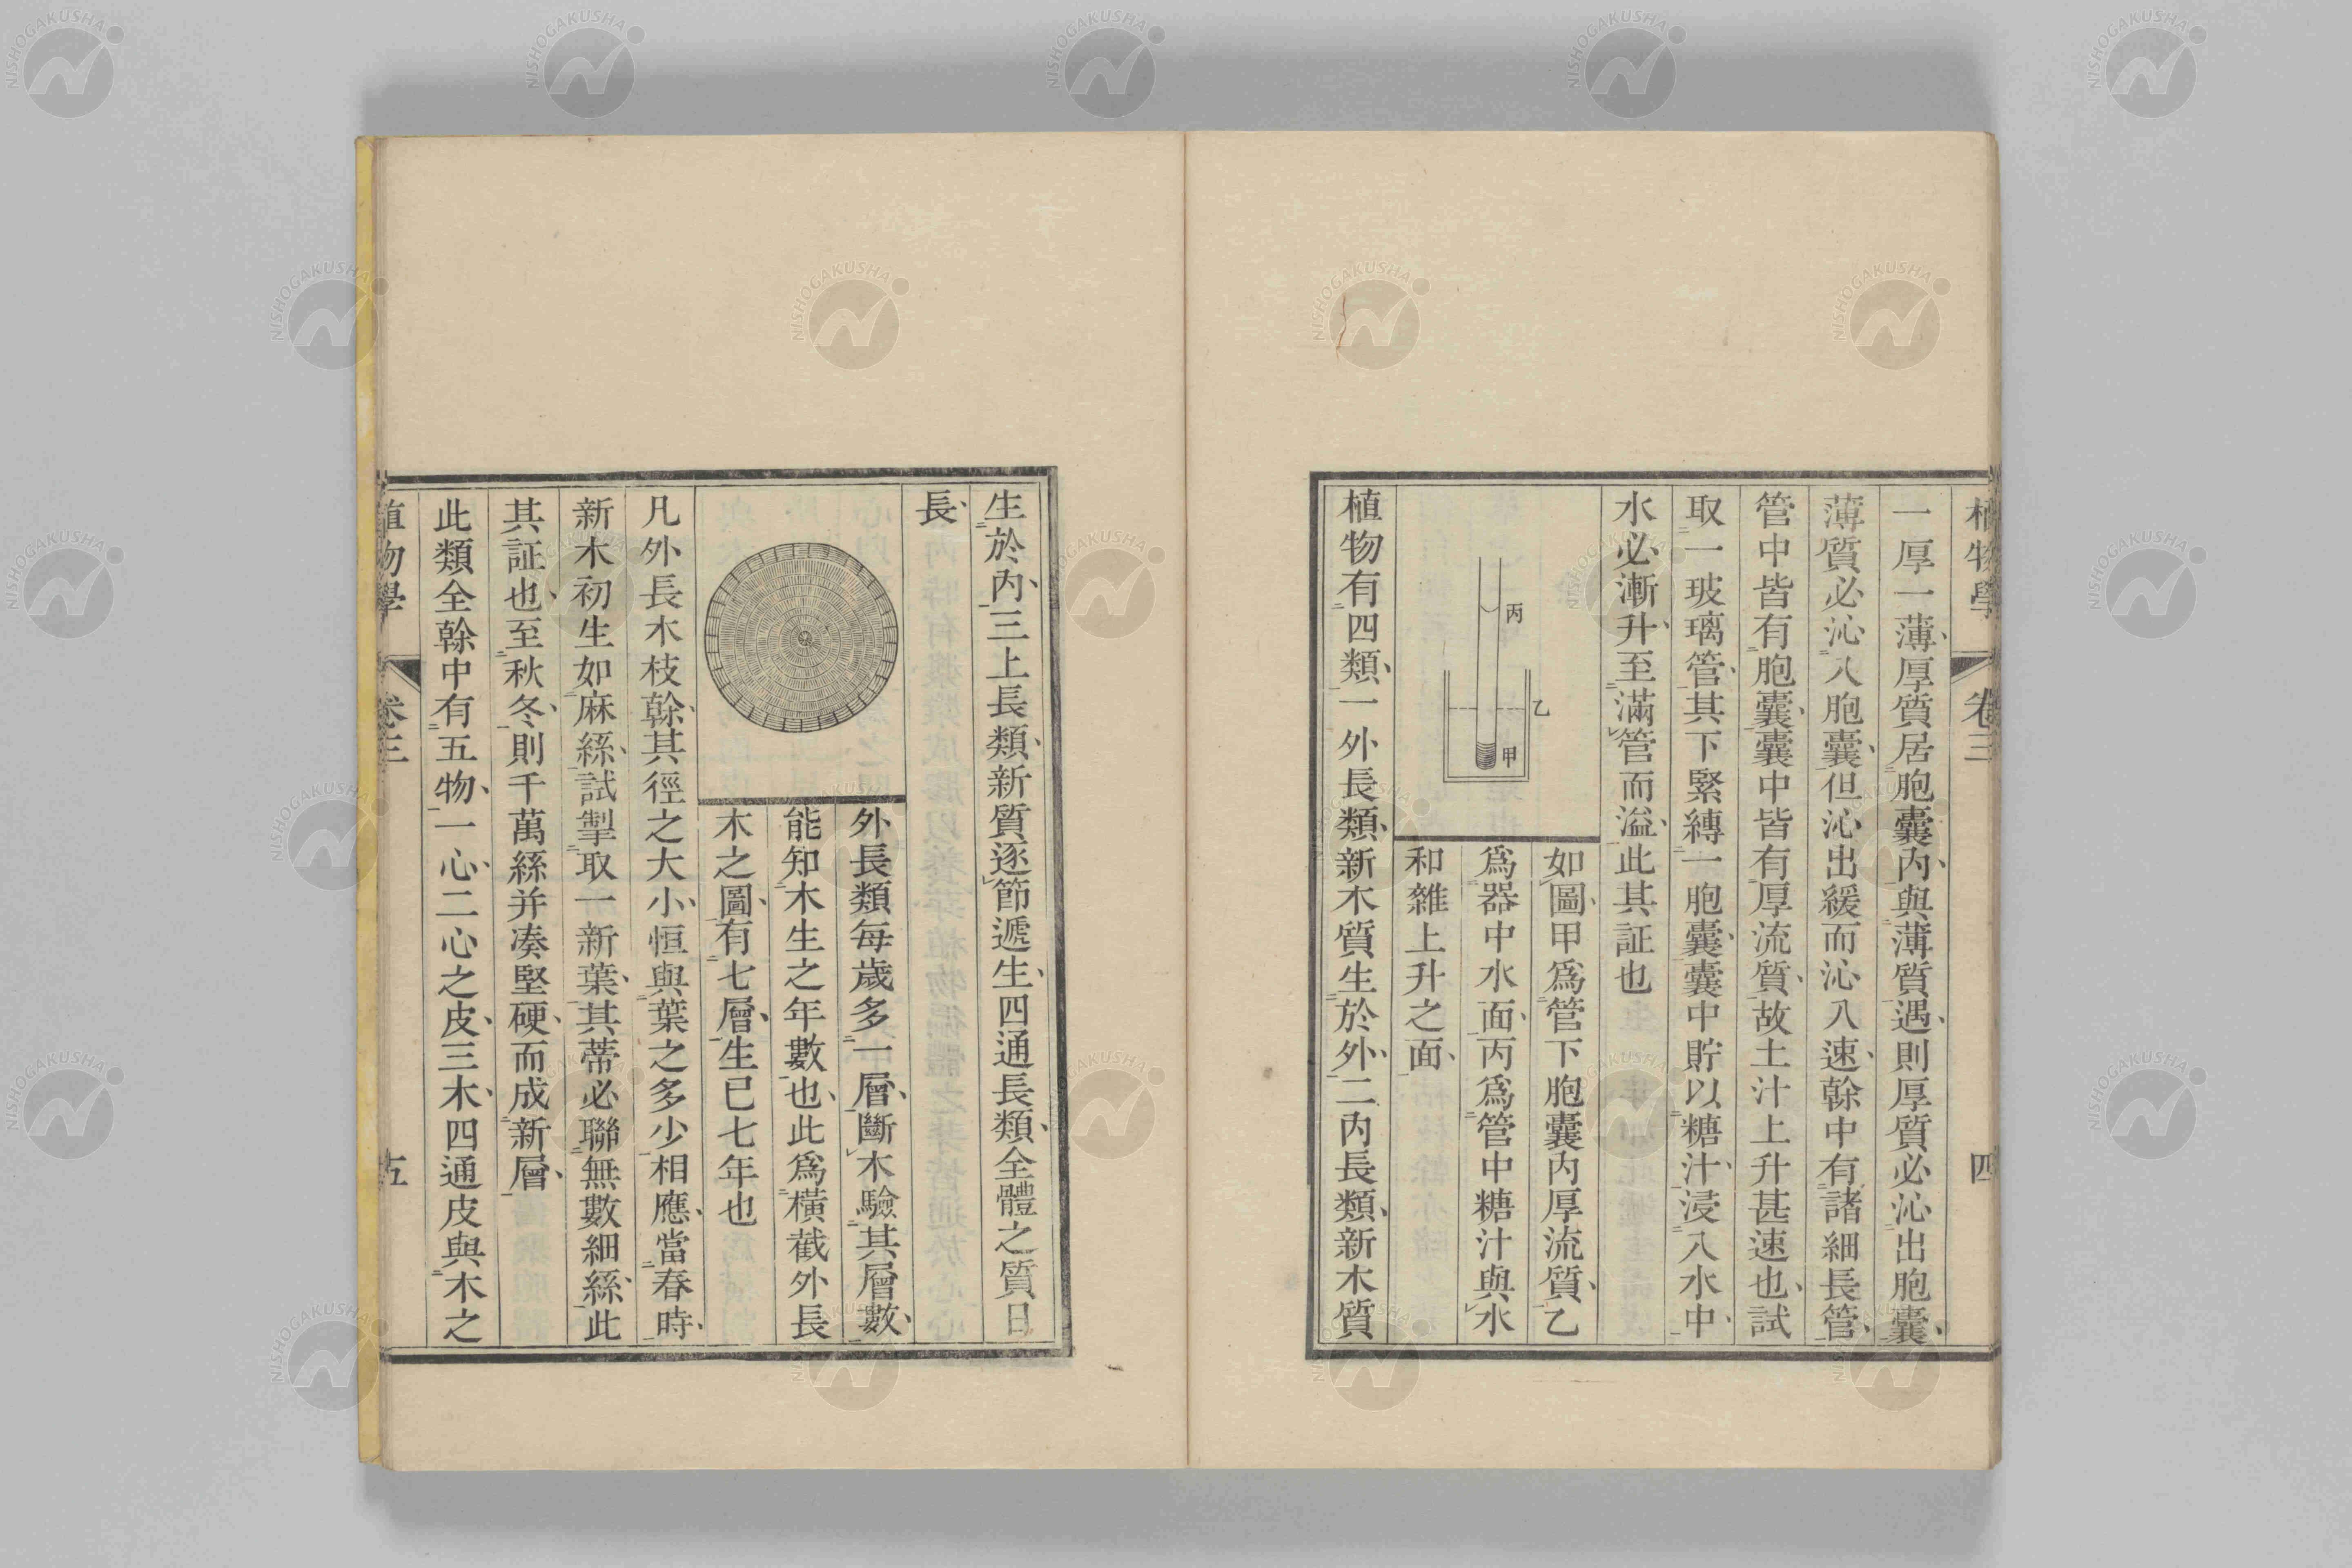 植物學 卷三 四
一厚一薄、厚質居胞囊內、與薄質遇、則厚質必沁出胞囊、
薄質必沁入胞囊、但沁出緩而沁入速、榦中有諸細長管、
管中皆有胞囊、囊中皆有厚流質、故土汁上升甚速也、試
取一玻璃管、其下緊縛一胞囊、囊中貯以糖汁、浸入水中、
水必漸升、至滿管而溢、此其証也
丙
乙
甲
如圖、甲爲管下胞囊內厚流質、乙
爲器中水面、丙爲管中糖汁與水
和雜上升之面、
植物有四類、一外長類、新木質生於外、二內長類、新木質
生於內、三上長類、新質逐節遞生、四通長類、全體之質日
長、
外長類每歲多一層、斷木驗其層數、
能知木生之年數也、此爲橫截外長
木之圖、有七層、生已七年也
凡外長木枝榦、其徑之大小、恒與葉之多少相應、當春時、
新木初生如麻絲、試掣取一新葉、其蒂必聯無數細絲、此
其証也、至秋冬、則千萬絲并凑堅硬、而成新層、
此類全榦中有五物、一心、二心之皮、三木、四通皮與木之
植物學 卷三 五
NISHOGAKUSHA